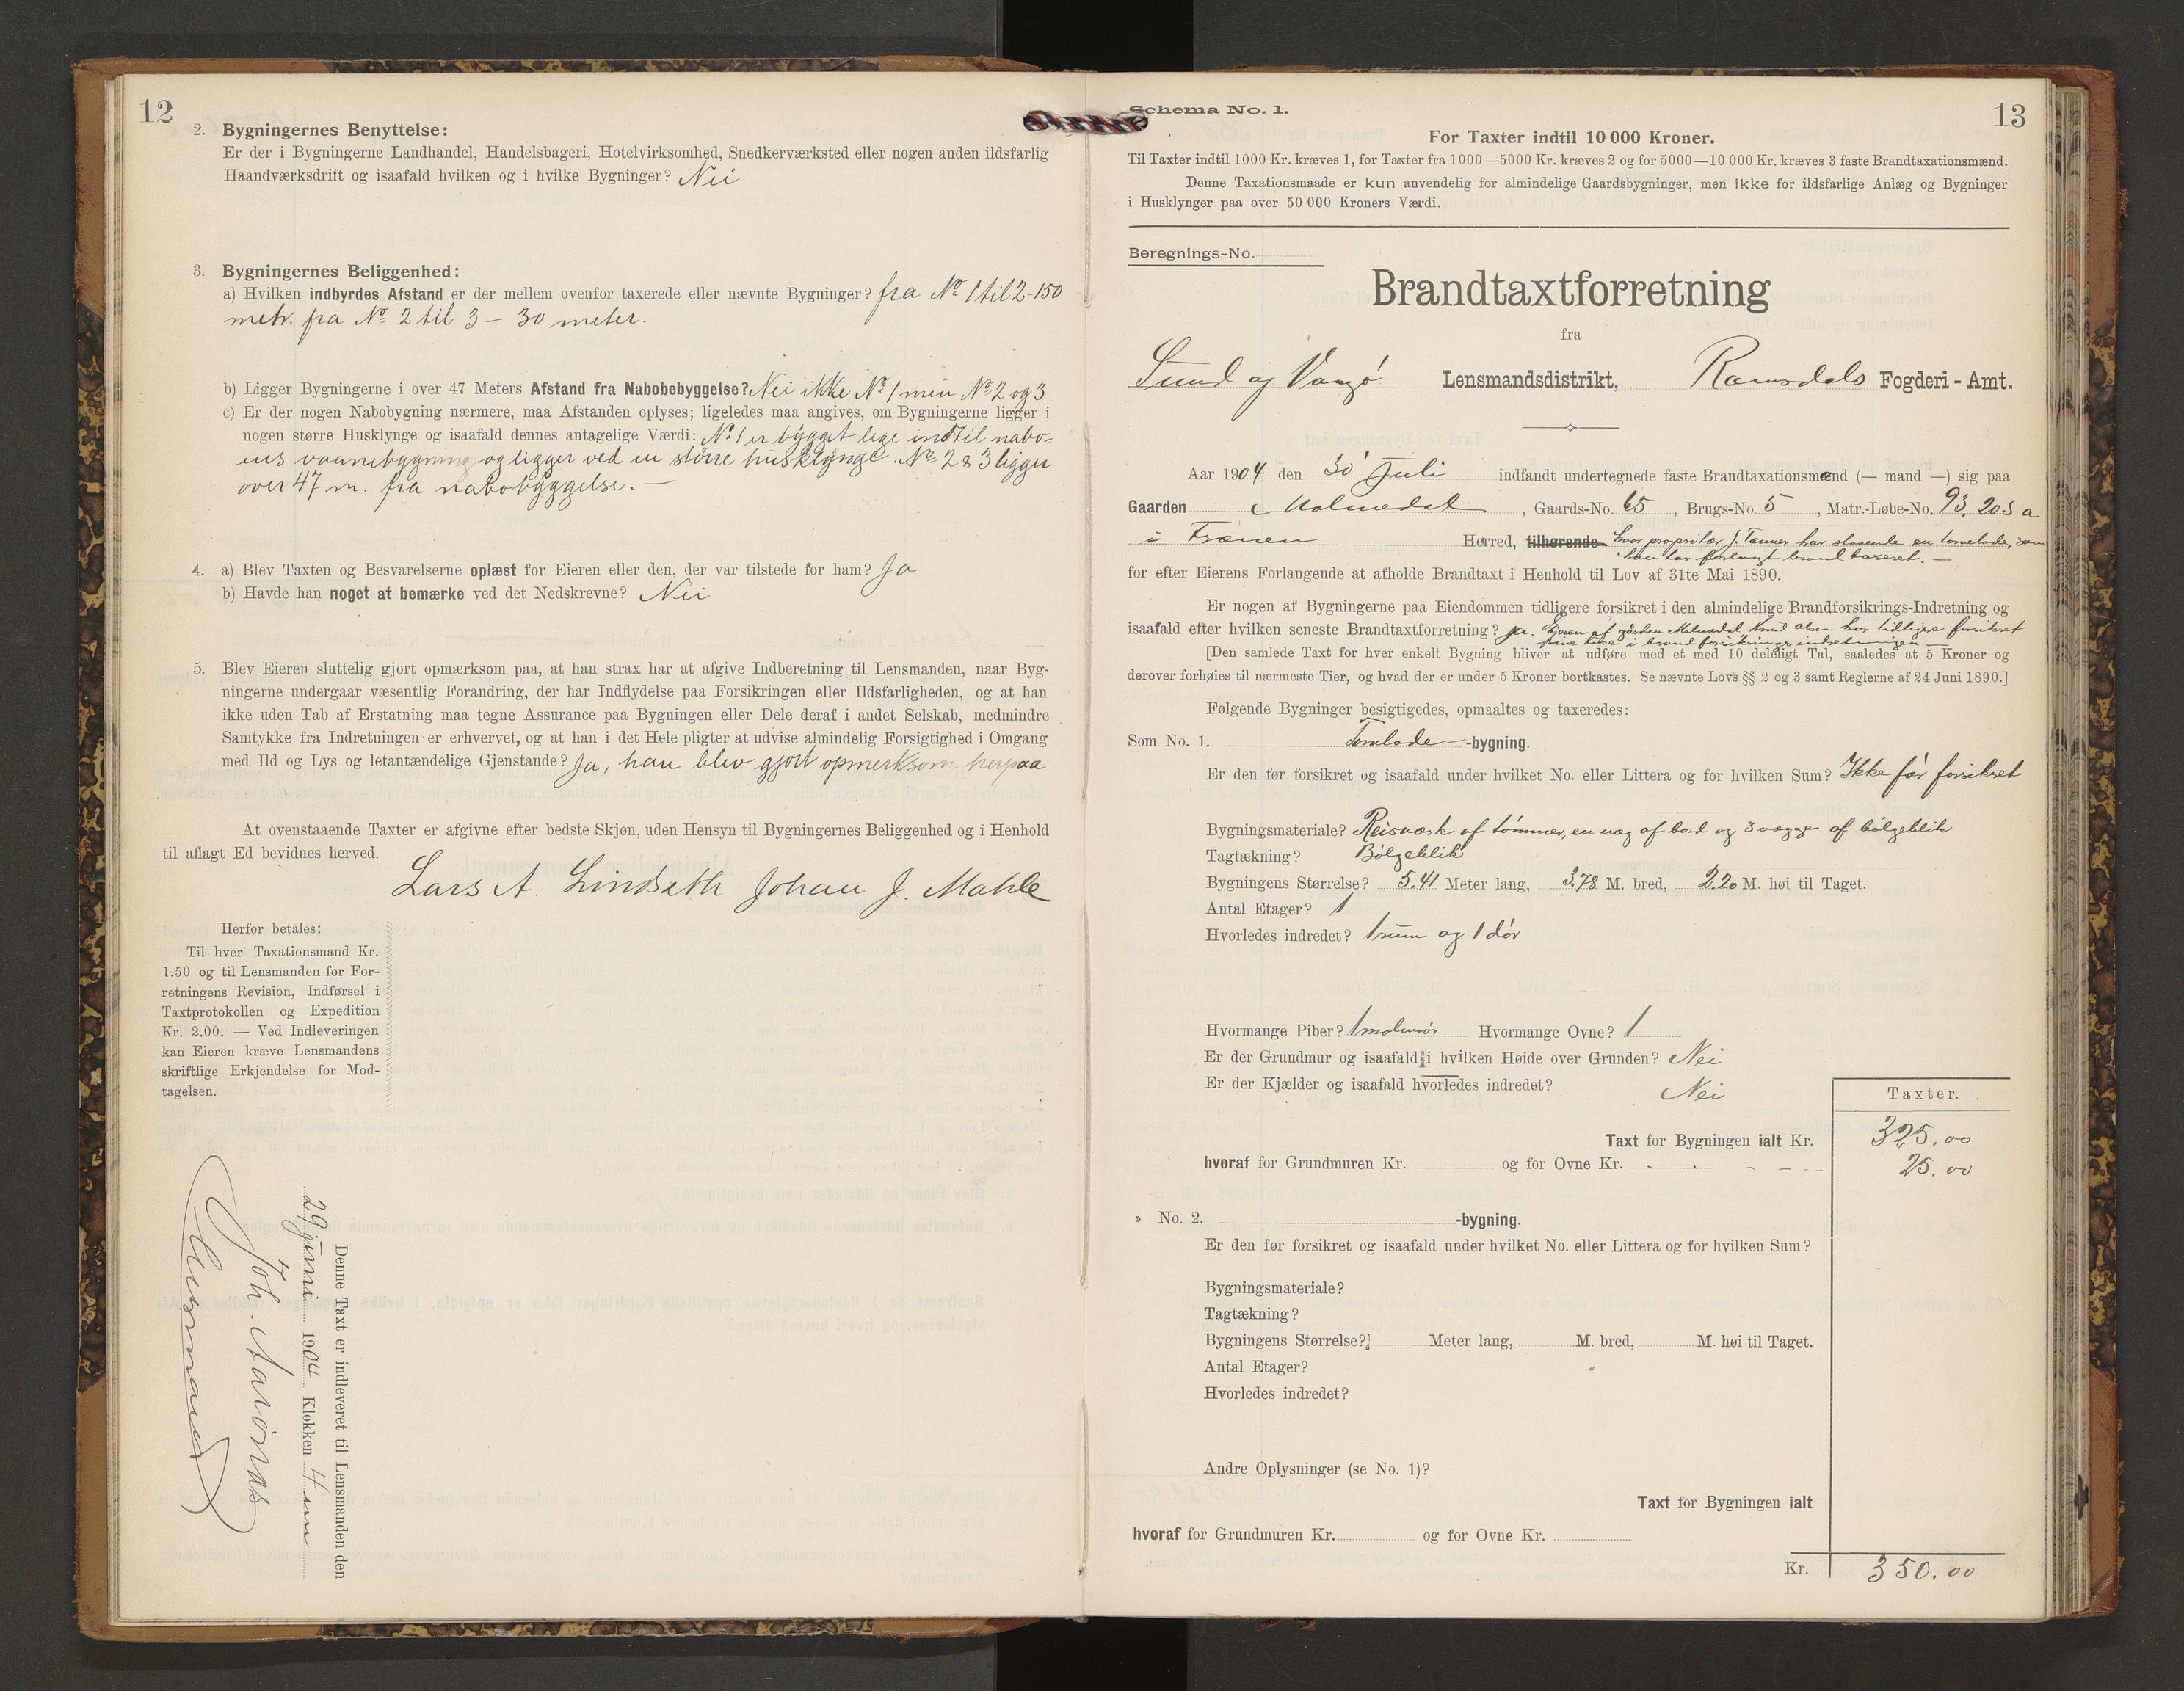 12
2. Bygningernes Benyttelse:
Er der i Bygningerne Landhandel, Handelsbageri, Hotelvirksomhed, Snedkerværksted eller nogen anden ildsfarlig
Haandværksdrift og isaafald hvilken og i hvilke Bygninger? Nei
3. Bygningernes Beliggenhed:
a) Hvilken indbyrdes Afstand er der mellem ovenfor taxerede eller nævnte Bygninger? fra No 1 til 2 - 150
metr. fra No 2 til 3 - 30 meter.
b) Ligger Bygningerne i over 47 Meters Afstand fra Nabobebyggelse? Nei ikke No 1 men No 2 og 3
c) Er der nogen Nabobygning nærmere, maa Afstanden oplyses; ligeledes maa angives, om Bygningerne ligger i
nogen større Husklynge og isaafald dennes antagelige Værdi: No 1 er bygget lige indtil nabo-
ens vaanebygning og ligger ved en større husklynge. No 2 & 3 ligger
over 47 m. fra nabobyggelse. —
4. a) Blev Taxten og Besvarelserne oplæst for Eieren eller den, der var tilstede for ham? Ja
b) Havde han noget at bemærke ved det Nedskrevne? Nei
5. Blev Eieren sluttelig gjort opmærksom paa, at han strax har at afgive Indberetning til Lensmanden, naar Byg-
ningerne undergaar væsentlig Forandring, der har Indflydelse paa Forsikringen eller Ildsfarligheden, og at han
ikke uden Tab af Erstatning maa tegne Assurance paa Bygningen eller Dele deraf i andet Selskab, medmindre
Samtykke fra Indretningen er erhvervet, og at han i det Hele pligter at udvise almindelig Forsigtighed i Omgang
med Ild og Lys og letantændelige Gjenstande? Ja, han blev gjort opmerksom herpaa
At ovenstaaende Taxter er afgivne efter bedste Skjøn, uden Hensyn til Bygningernes Beliggenhed og i Henhold
til aflagt Ed bevidnes herved.
Lars A. Lindseth Johan J. Mahle
Herfor betales:
Til hver Taxationsmand Kr.
1.50 og til Lensmanden for For-
retningens Revision, Indførsel i
Taxtprotokollen og Expedition
Kr. 2.00. — Ved Indleveringen
kan Eieren kræve Lensmandens
skriftlige Erkjendelse for Mod-
tagelsen.
Denne Taxt er indleveret til Lensmanden den
29 juni 1904 Klokken 4 em
Joh. Aarønæs
13
Schema No. 1.
For Taxter indtil 10 000 Kroner.
Til Taxter indtil 1000 Kr. kræves 1, for Taxter fra 1000—5000 Kr. kræves 2 og for 5000—10 000 Kr. kræves 3 faste Brandtaxationsmænd.
Denne Taxationsmaade er kun anvendelig for almindelige Gaardsbygninger, men ikke for ildsfarlige Anlæg og Bygninger
i Husklynger paa over 50 000 Kroners Værdi.
Beregnings-No.
Brandtaxtforretning
fra
Sund og Vaagø Lensmandsdistrikt, Romsdals Fogderi - Amt.
Aar 1904 den 30 Juli indfandt undertegnede faste Brandtaxationsmænd (— mand —) sig paa
Gaarden Malmedal, Gaards-No. 65, Brugs-No. 5, Matr.-Løbe-No. 93, 203 a
i Frænen Herred, tilhørende hvor propritær J. Tanner har staaende en tomelade, som
han har forlangt brand taxeret. —
for efter Eierens Forlangende at afholde Brandtaxt i Henhold til Lov af 31te Mai 1890.
Er nogen af Bygningerne paa Eiendommen tidligere forsikret i den almindelige Brandforsikrings-Indretning og
isaafald efter hvilken seneste Brandtaxtforretning? Ja. Eieren af gården Malmedal Knud Olsen har tidligere forsikret
sine huse i brandforsikringsindretningen
[Den samlede Taxt for hver enkelt Bygning bliver at udføre med et med 10 deleligt Tal, saaledes at 5 Kroner og
derover forhøies til nærmeste Tier, og hvad der er under 5 Kroner bortkastes. Se nævnte Lovs §§ 2 og 3 samt Reglerne af 24 Juni 1890.]
Følgende Bygninger besigtigedes, opmaaltes og taxeredes:
Som No. 1. Tomlade -bygning.
Er den før forsikret og isaafald under hvilket No. eller Littera og for hvilken Sum? Ikke før forsikret
Bygningsmateriale? Reisværk af tømmer, en væg af bord og 3 vægge af bølgeblik
Tagtækning? Bølgeblik
Bygningens Størrelse? 5.41 Meter lang, 3.78 M. bred, 2.20 M. høi til Taget.
Antal Etager? 1
Hvorledes indredet? 1 rum og 1 dør
Hvormange Piber? 1 Hvormange Ovne? 1
Er der Grundmur og isaafald i hvilken Høide over Grunden? Nei
Er der Kjælder og isaafald hvorledes indredet? Nei
Taxter.
Taxt for Bygningen ialt Kr. 325.00
hvoraf for Grundmuren Kr. og for Ovne Kr. 25.00
» No. 2. -bygning.
Er den før forsikret og isaafald under hvilket No. eller Littera og for hvilken Sum?
Bygningsmateriale?
Tagtækning?
Bygningens Størrelse? Meter lang, M. bred, M. høi til Taget.
Antal Etager?
Hvorledes indredet?
Andre Oplysninger (se No. 1)?
Taxt for Bygningen ialt
hvoraf for Grundmuren Kr. og for Ovne Kr.
Kr. 350.00